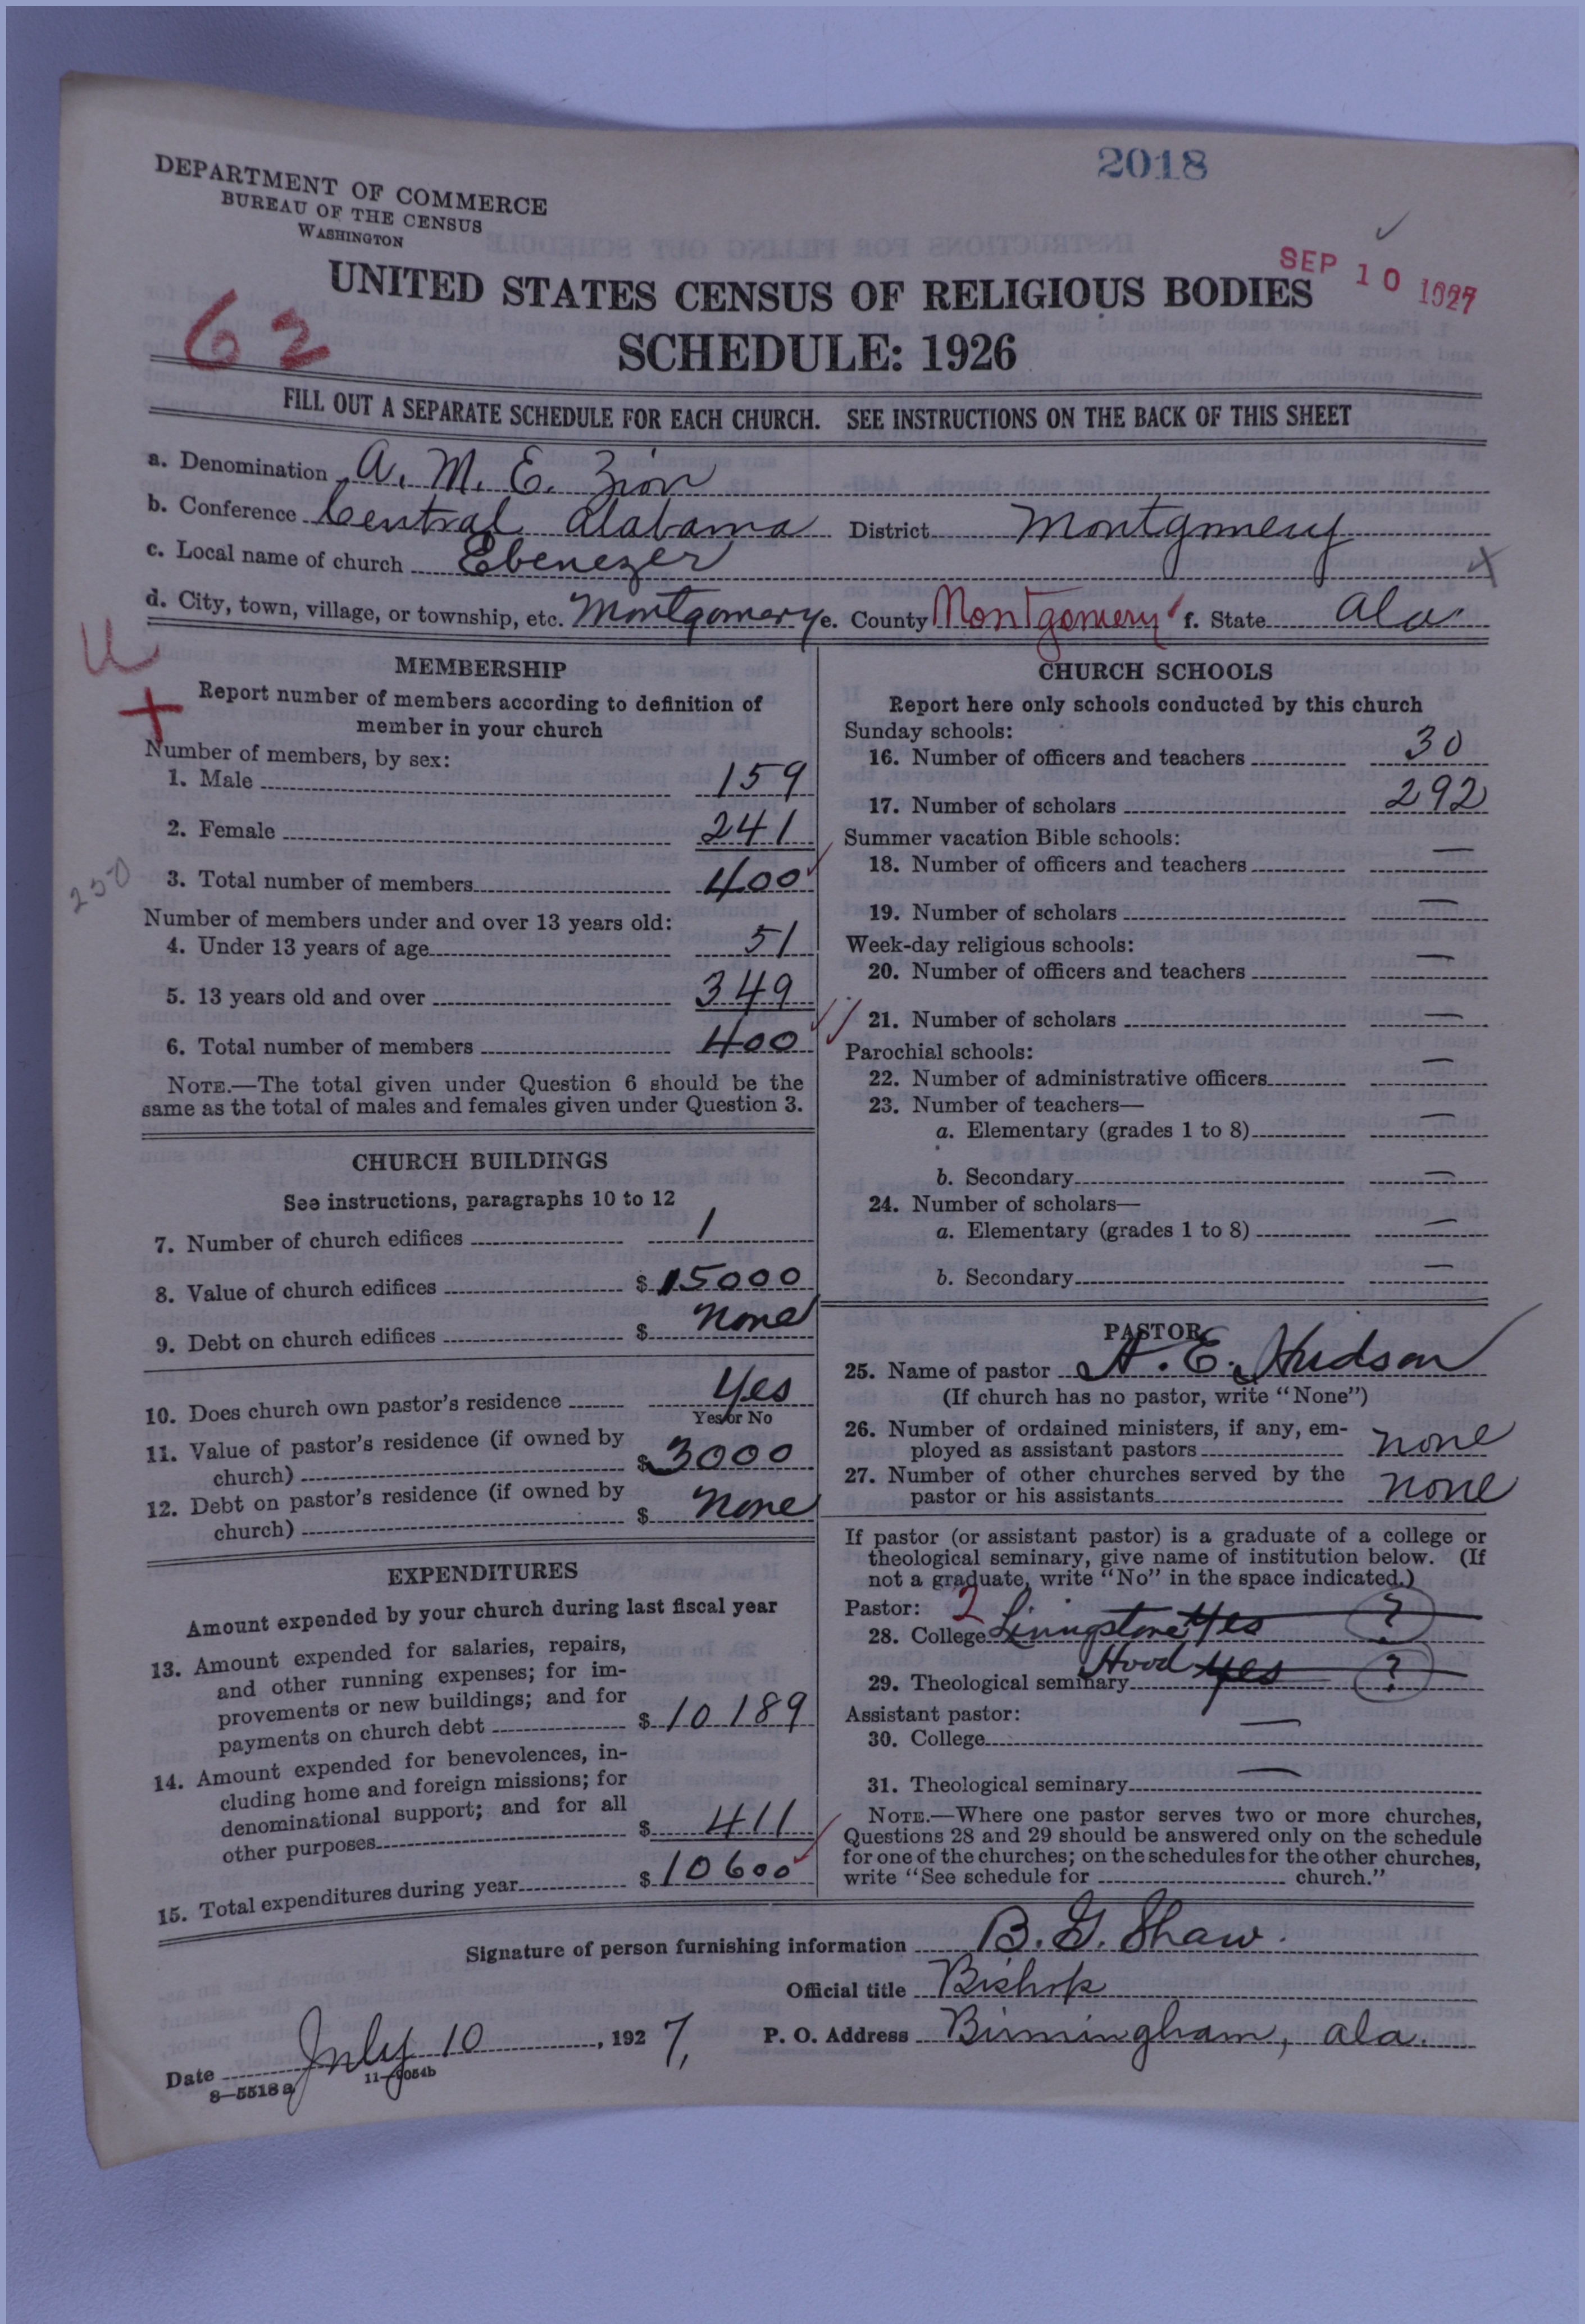 2018
DEPARTMENT OF COMMERCE
BUREAU OF THE CENSUS
WASHINGTON
SEP 10 1927
62
UNITED STATES CENSUS OF RELIGIOUS BODIES
SCHEDULE: 1926
FILL OUT A SEPARATE SCHEDULE FOR EACH CHURCH. SEE INSTRUCTIONS ON THE BACK OF THIS SHEET
a. Denomination A. M. E. Zion
b. Conference Central Alabama District Montgomery
c. Local name of church Ebenezer
d. City, town, village, or township, etc. Montgomery e. County Montgomery f. State Ala
MEMBERSHIP
Report number of members according to definition of
member in your church
Number of members, by sex:
1. Male 159
2. Female 241
250
3. Total number of members 400
Number of members under and over 13 years old:
4. Under 13 years of age 51
5. 13 years old and over 349
6. Total number of members 400
NOTE.—The total given under Question 6 should be the
same as the total of males and females given under Question 3.
CHURCH BUILDINGS
See instructions, paragraphs 10 to 12
7. Number of church edifices 1
8. Value of church edifices $ 15000
9. Debt on church edifices $ None
10. Does church own pastor's residence Yes
Yes or No
11. Value of pastor's residence (if owned by
church) $ 3000
12. Debt on pastor's residence (if owned by
church) $ None
EXPENDITURES
Amount expended by your church during last fiscal year
13. Amount expended for salaries, repairs,
and other running expenses; for im-
provements or new buildings; and for
payments on church debt $ 10189
14. Amount expended for benevolences, in-
cluding home and foreign missions; for
denominational support; and for all
other purposes $ 411
15. Total expenditures during year $ 10600
CHURCH SCHOOLS
Report here only schools conducted by this church
Sunday schools:
16. Number of officers and teachers 30
17. Number of scholars 292
Summer vacation Bible schools:
18. Number of officers and teachers —
19. Number of scholars —
Week-day religious schools:
20. Number of officers and teachers —
21. Number of scholars —
Parochial schools:
22. Number of administrative officers —
23. Number of teachers—
a. Elementary (grades 1 to 8) —
b. Secondary —
24. Number of scholars—
a. Elementary (grades 1 to 8) —
b. Secondary —
PASTOR
25. Name of pastor A. E. Hudson
(If church has no pastor, write "None")
26. Number of ordained ministers, if any, em-
ployed as assistant pastors none
27. Number of other churches served by the
pastor or his assistants none
If pastor (or assistant pastor) is a graduate of a college or
theological seminary, give name of institution below. (If
not a graduate, write "No" in the space indicated.)
Pastor: 2
28. College Livingstone Yes ?
29. Theological seminary Hood yes ?
Assistant pastor:
30. College —
31. Theological seminary —
NOTE.—Where one pastor serves two or more churches,
Questions 28 and 29 should be answered only on the schedule
for one of the churches; on the schedules for the other churches,
write "See schedule for church."
Signature of person furnishing information B. G. Shaw.
Official title Bishop
Date July 10, 1927, P. O. Address Birmingham, Ala.
8—5518 a 11—9054b